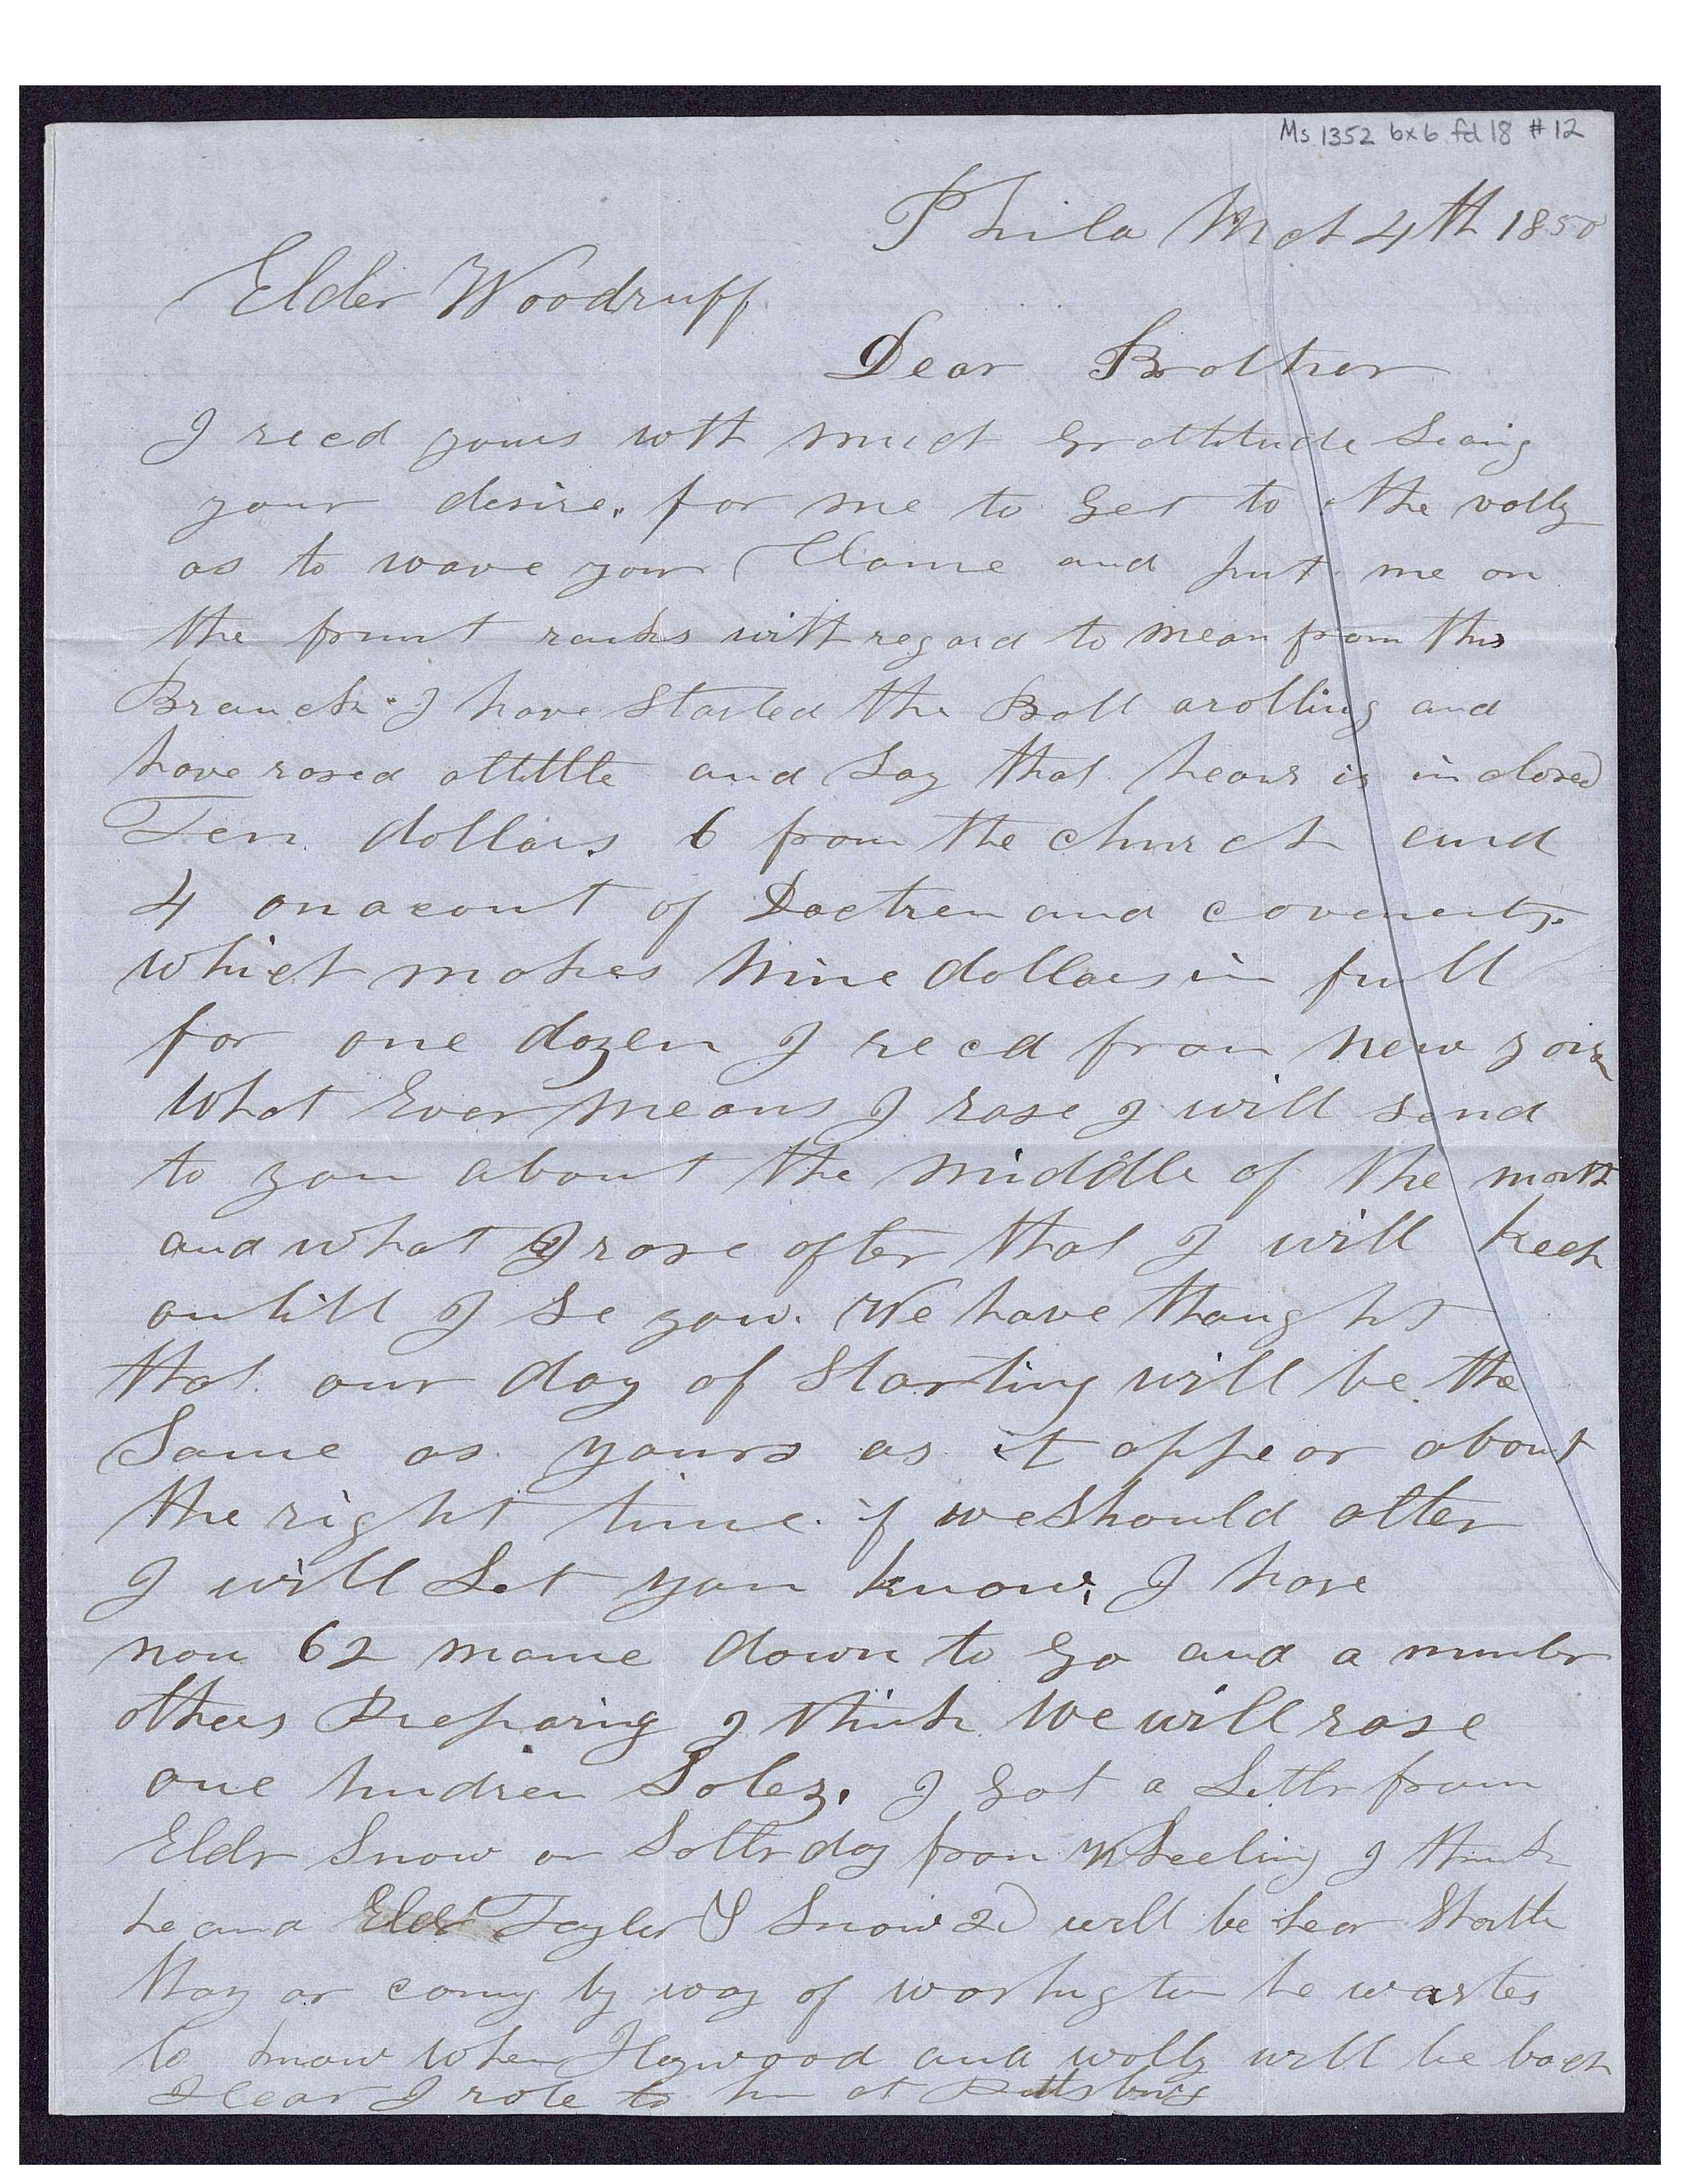 Ms 1352 bx 6 fd 18 #12
Phila Mch 4th 1850
Elder Woodruff
Dear Brother
I recd yours with much Grattitude Seaing
your desire. for me to Get to the vally
as to wave your Clame and put me on
the frunt ranks with regard to mean from this
Branch I have Started the Ball arolling and
have rased alittle and Say that hear is inclosed
Ten dollars 6 from the church and
4 on acount of Doctren and covenents
which makes Nine dollars in full
for one dozen I recd from New york
What Ever means I rase I will send
to you about the middle of the month
and what I rase after that I will keep
ontill I Se you. We have thought
that our day of Starting will be the
Same as yours as it appear about
the right time. if we Should alter
I will Let you know. I have
now 62 name down to Go and a number
others Preparing I think We will rase
one hundren Soles. I Got a Lettr from
Eldr Snow on Satterday from Wheeling I think
he and Eldr Tayler & Snow 2d will be hear Shortly
They ar coming by way of Washington he wantes
to know when Haywood and wolly will be back
I rote to him at Pittsburg